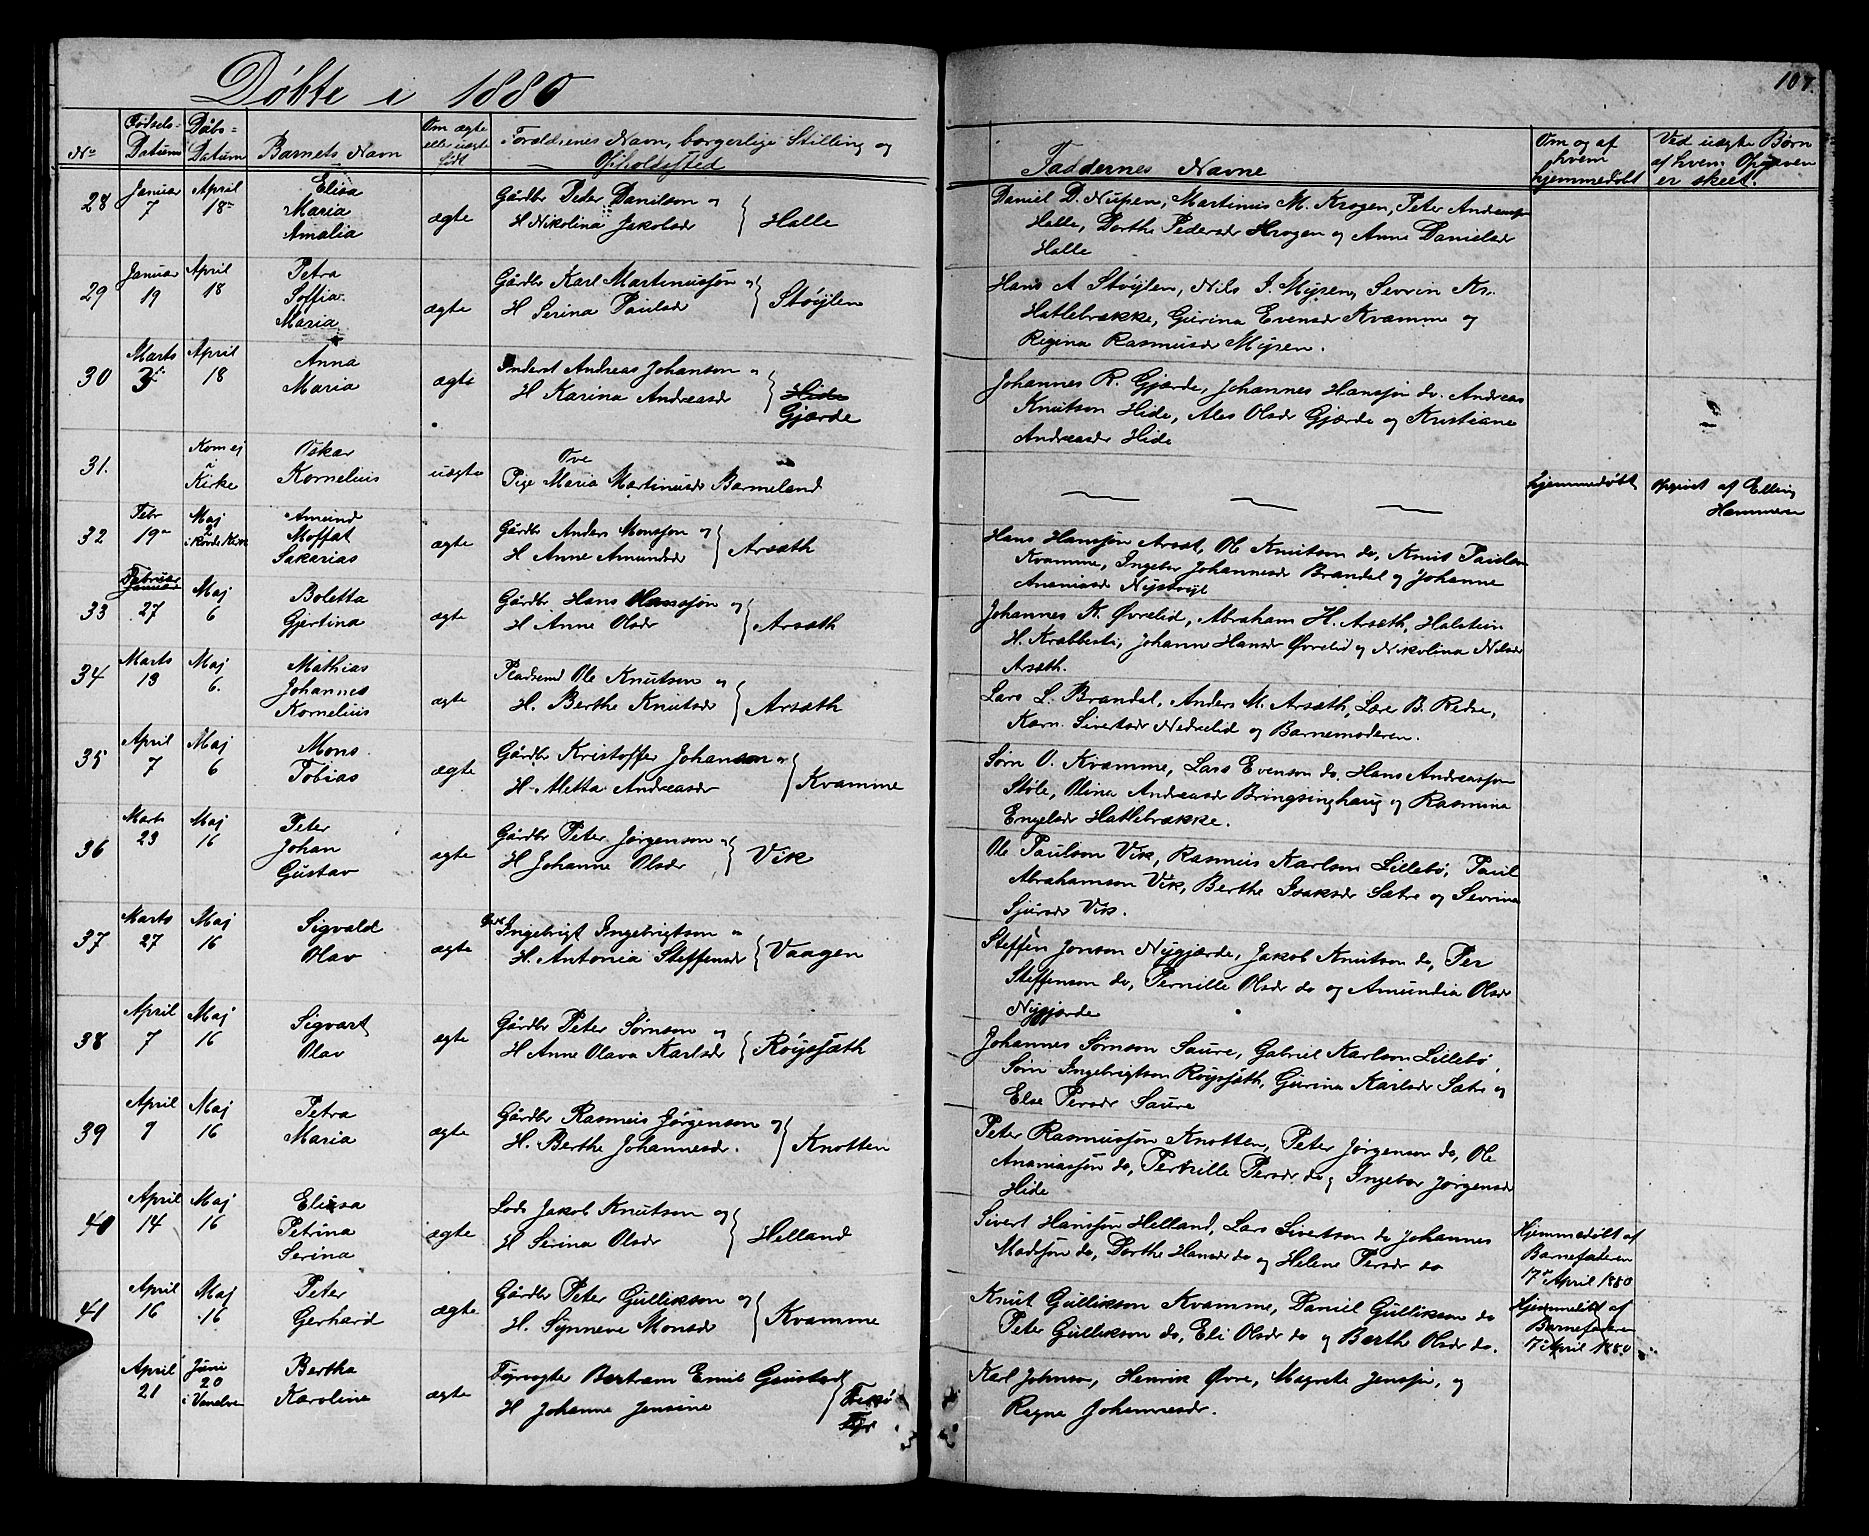 Døbte i 1880
107.
No
Fødsels-
Datum
Døbs-
Datum
Barnets Navn
Om ægte
eller uægte
født
Forældrenes Navn, borgerlige Stilling og
Opholdssted
Faddernes Navne
Om og af
hvem
hjemmedøbt
Ved uægte Børn
af hvem Opgaven
er skeet.
28
Januar
7
April
18
Elisa
Maria
Amalia
ægte
Gårdbr Peder Danilson og
H Nikolina Jakobsdr
Halle
Daniel D. Nupen, Martinus M. Krogen, Peter Andreasson
Halle, Dorthe Pedersdr Krogen og Anne Danielsdr
Halle
29
Januar
19
April
18
Petra
Soffia
Maria
ægte
Gårdbr Karl Martinussøn og
H Serina Paulsdr
Støylen
Hans A Støylen, Nils J. Myren, Sevrin Kr.
Hatlebrække, Gurina Evensdr Kvamme og
Regina Rasmusdr Myren.
30
Marts
3
April
18
Anna
Maria
ægte
Inderst Andreas Johanson og
H Karina Andreasdr
Hide
Gjærde
Johannes R. Gjærde, Johannes Hanssøn do. Andreas
Knutson Hide, Ales Olsdr Gjærde og Kristiane
Andreasdr Hide
31.
Kom ej
i
Kirke
Oskar
Kornelius
uægte
Ove
Pige Maria Martinusdr Barmeland
hjemmedøbt
opgivet af Elling
Hammeren
32
Febr
19
Maj
2
Amund
Moffat
Sakarias
ægte
Gårdbr Anders Monssøn og
H Anne Amundsdr
Arsæth
Hans Hanssøn Arsæt, Ole Knutson do, Knut Paulson
Kvamme, Ingebor Johannesdr Brandal og Johanne
Ananiasdr
33
Februar
Januar
27
Maj
6
Boletta
Gjertina
ægte
Gårdbr Hans Hanssøn og
H Anne Olsdr
Arsæth
Johannes K. Øvrelid, Abraham H. Arsæth, Halstein
H. Krabbesti, Johanne Hansdr Øvrelid og Nikolina Nilsdr
Arsæth.
34
Marts
13
Maj
6.
Mathias
Johannes
Kornelius
ægte
Pladsmd Ole Knutson og
H. Berthe Knutsdr
Arsæth
Lars L. Brandal, Anders M. Arsæth, Lars B. Redse,
Karn. Sivertsdr Nedrelid og Barnemoderen.
35
April
7
Maj
6
Mons
Tobias
ægte
Gårdbr Kristoffer Johanson og
H. Metta Andreasdr
Kvamme
Sørn O. Kvamme, Lars Evenson do, Hans Andreassøn
Støle, Olina Andreasdr Bringsinghaug og Rasmine
Engelsdr Hatlebrække.
36
Marts
23
Maj
16
Peter
Johan
Gustav
ægte
Gårdbr Peter Jørgenson og
H Johanne Olsdr
Vik
Ole Paulson Vik, Rasmus Karlson Lillebø, Paul
Abrahamson Vik, Berthe Isaksdr Sætre og Sevrina
Sjursdr Vik.
37
Marts
27
Maj
16
Sigvald
Olav
ægte
Ingebrigt Ingebrigtson og
H. Antonia Steffensdr
Vaagen
Steffen Jonson Nygjærde, Jakob Knutson do, Per
Steffenson do, Pernille Olsdr do og Amundia Olsdr
Nygjærde
38
April
7
Maj
16
Sigvart
Olav
ægte
Gårdbr Peter Sørnson og
H Anne Olava Karlsdr
Røyssæth
Johannes Sørnson Saure, Gabriel Karlson Lillebø,
Sørn Ingebrigtson Røyssæth, Gurina Karlsdr Sætre og
Else Persdr Saure
39
April
9
Maj
16
Petra
Maria
ægte
Gårdbr Rasmus Jørgenson og
H. Berthe Johannesdr.
Knotten
Peter Rasmussøn Knotten, Peter Jørgenson do, Ole
Ananiassøn do, Pernille Persdr do og Ingebor Jørgensdr
Hide
40
April
14
Maj
16
Elisa
Petrina
Serina
ægte
Lods Jakob Knutson og
H Serina Olsdr
Helland
Sivert Hanssøn Helland, Lars Sivertson do Johannes
Madssøn do, Dorthe Hansdr do og Helene Persdr do
Hjemmedøbt af
Barnefaderen
17 April 1880
41
April
16
Maj
16
Peter
Gerhard
ægte
Gårdbr Peter Gullikson og
H. Synneve Monsdr
Kvamme
Knut Gullikson Kvamme, Daniel Gullikson do
Peter Gullikson do, Eli Olsdr do og Berthe Olsdr do.
Hjemmedøbt af
Barnefaderen
17 April 1880
April
21
Juni
20
i Vanelven
Bertha
Karoline
ægte
Fyrvogter Bertram Emil Gustad
H Johanne Jensine
Fyr
Karl Johnson, Henrik Øvre, Magrete Jenssøn, og
Ragna Johannesdr.